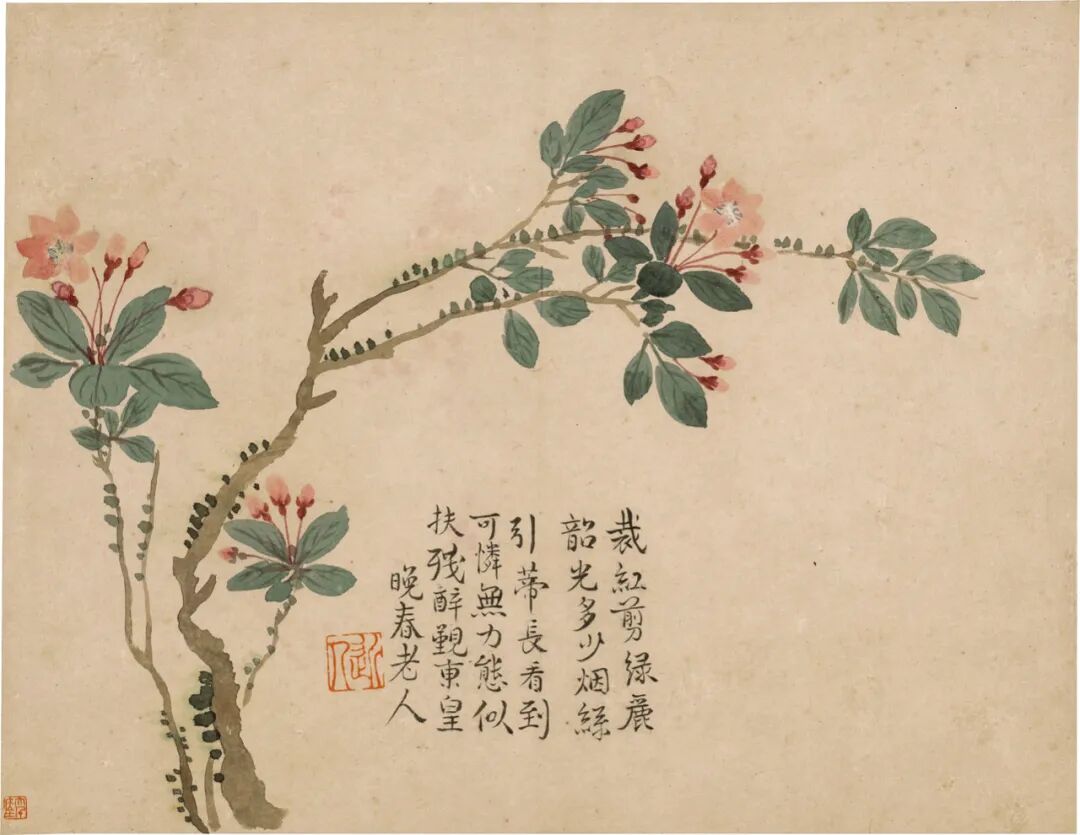 裁紅剪绿麗
韶光多少烟絲
引蒂長看到
可憐無力態似
扶殘醉覲東皇
晚春老人